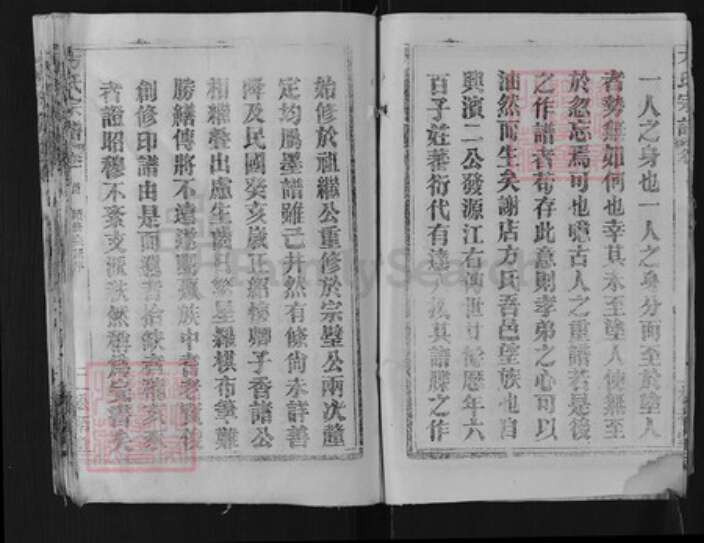 一人之身也一人之身分而至於塗人
者勢無如何也幸其未至塗人使無至
於忽忘焉可也噫古人之重譜若是後
之作譜者苟存此意則孝弟之心可以
油然而生矣謝店方氏吾邑望族也自
興濱二公發源江右傳世廿餘歷年六
百子姓蕃衍代有達人故其譜牒之作
始修於祖繼公重修於宗璧公兩次釐
定均屬墨譜雖已井然有條尚未詳善
時及民國癸亥歲正紹卿子香諸公
相繼整出慮生齒日繁星羅棋布筆難
勝繕傳將不遠遂集族中耆老
創修印譜由是而遺者拾缺者
者證昭穆不紊支派秩然
方氏宗譜
FamilySearch